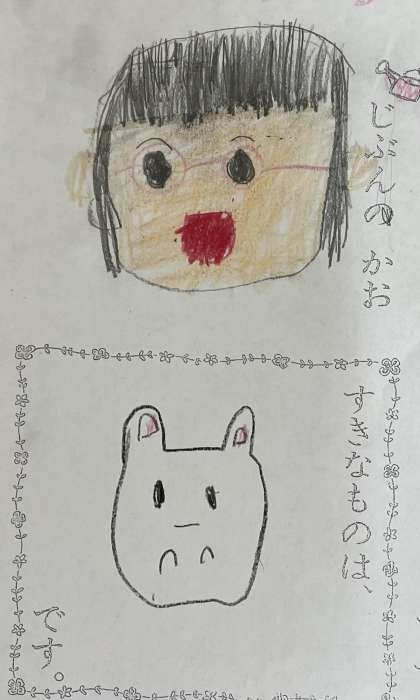 じぶんの　かお
すきなものは、
です。